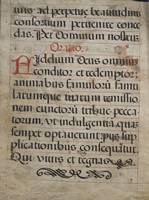 nus ad perpetuę beatitudinis
consortium pervenire conce
das. Per Dominum nostrum
Oratio.
Fidelium Deus omnium
conditor et redemptor:
animabus famulorũ famu
larumque tuarum remissio
nem cunctorũ tribue pecca
torum: ut indulgentiã, quã
semper optaverunt, pijs sup
plicationibus consequatur.
Qui vivis et regnas